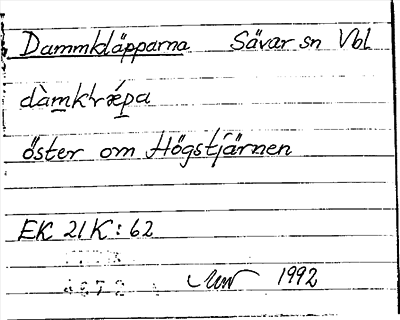 Dammkläpparna Sävar sn Vbl
dàmkḷǽpa
öster om Högstjärnen
EK 21 K: 62
1992